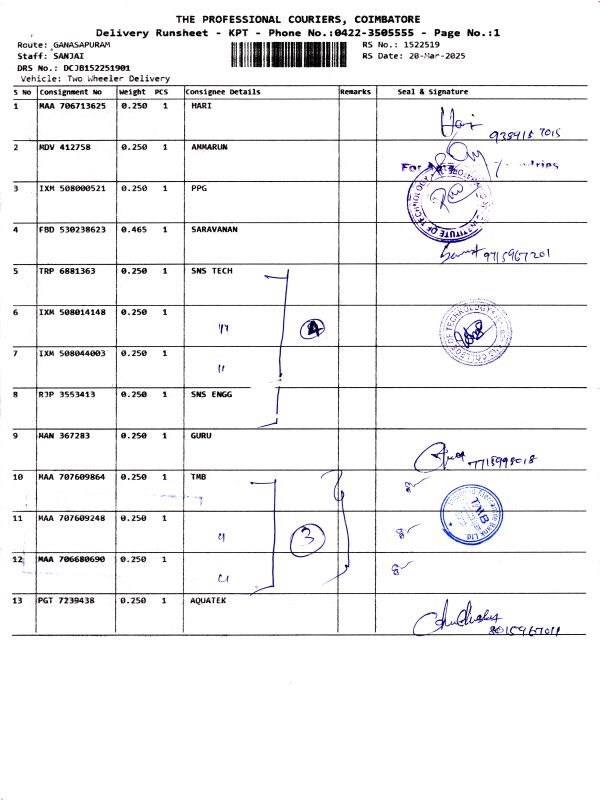 THE PROFESSIONAL COURIERS, COIMBATORE
Delivery Runsheet - KPT - Phone No.:0422-3505555 - Page No.:1
Route: GANASAPURAM RS No.: 1522519
Staff: SANJAI RS Date: 20-Mar-2025
DRS No.: DCJB152251901
Vehicle: Two Wheeler Delivery
S No Consignment No Weight PCS Consignee Details Remarks Seal & Signature
1 MAA 706713625 0.250 1 HARI
2 MDV 412758 0.250 1 AMMARUN
3 IXM 508000521 0.250 1 PPG
4 FBD 530238623 0.465 1 SARAVANAN
9715967201
5 TRP 6881363 0.250 1 SNS TECH
6 IXM 508014148 0.250 1 " 4
7 IXM 508044003 0.250 1 "
8 RJP 3553413 0.250 1 SNS ENGG
9 MAN 367283 0.250 1 GURU
10 MAA 707609864 0.250 1 TMB
TMB
11 MAA 707609248 0.250 1 " 3
12 MAA 706680690 0.250 1 "
13 PGT 7239438 0.250 1 AQUATEK